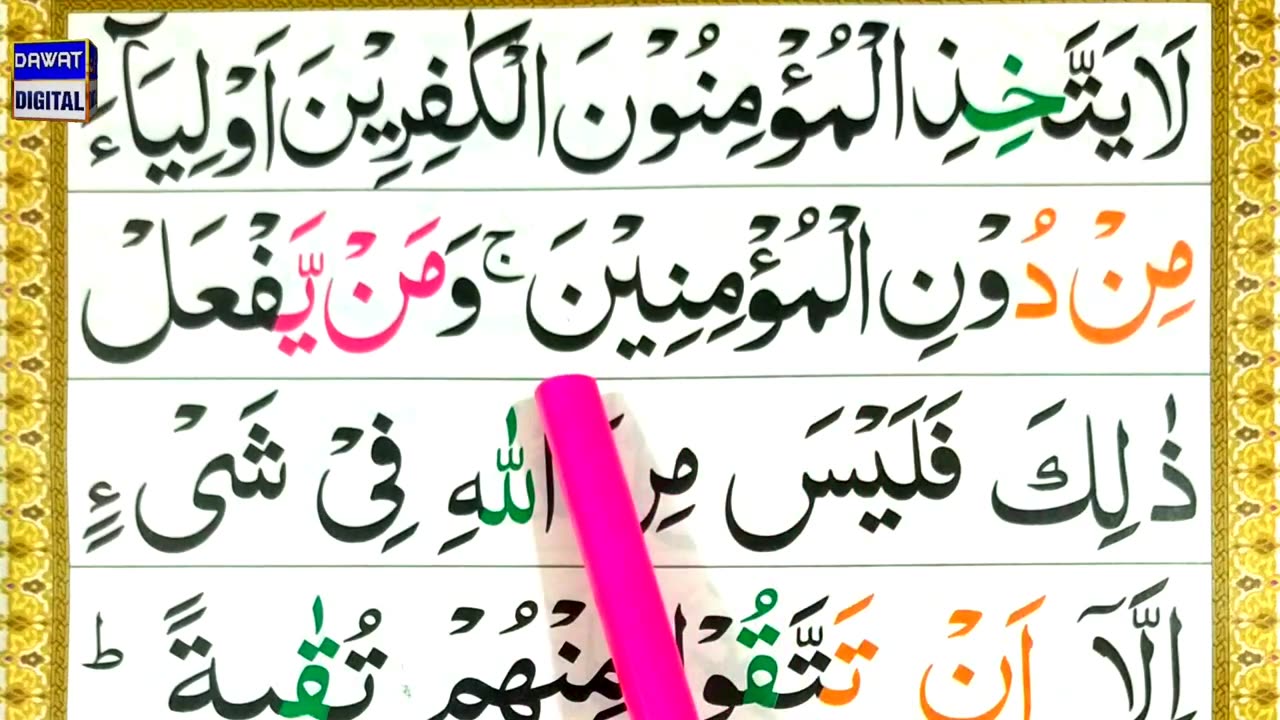 DAWAT
DIGITAL
لَا يَتَّخِذِ الْمُؤْمِنُوْنَ الْكٰفِرِيْنَ اَوْلِيَآءَ
مِنْ دُوْنِ الْمُؤْمِنِيْنَ ۚ وَمَنْ يَّفْعَلْ
ذٰلِكَ فَلَيْسَ مِنَ اللّٰهِ فِیْ شَیْءٍ
اِلَّاۤ اَنْ تَتَّقُوْا مِنْهُمْ تُقٰىةً ؕ